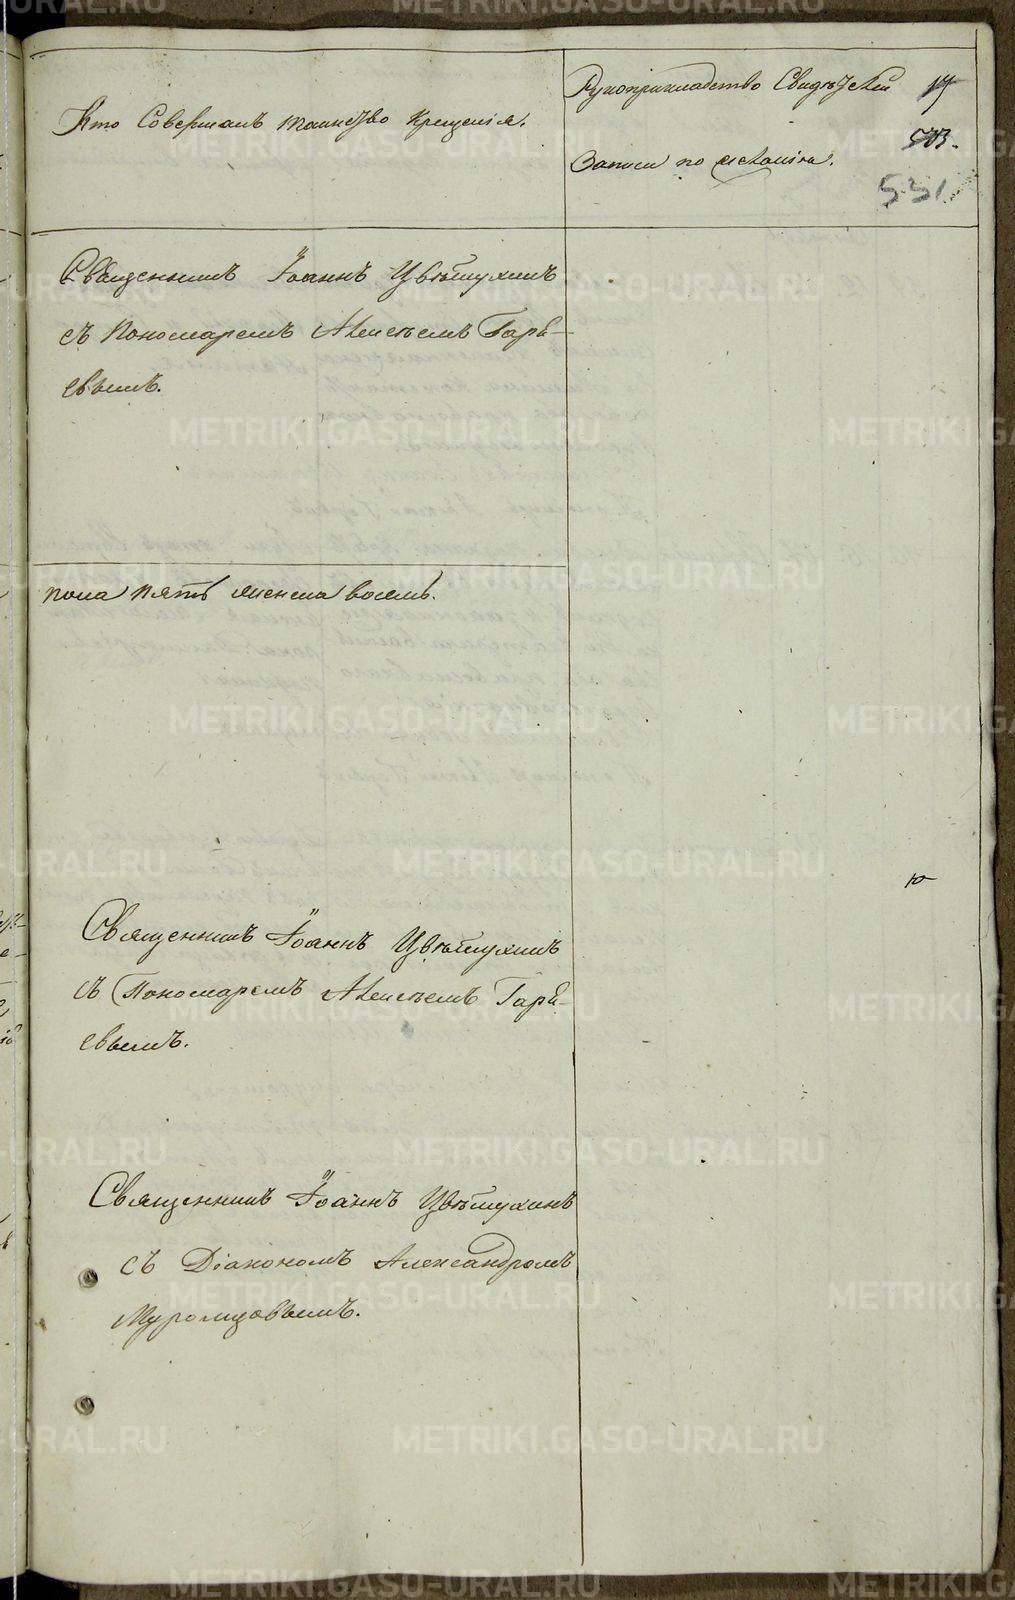 Кто Совершалъ таинство крещенія.
Рукоприкладство Свидѣтелей
17
503.
Записи по желанію.
531
Священникъ Іоаннъ Цвѣтухинъ
съ Пономаремъ Алексѣемъ Гарѣ-
евымъ.
пола пять женска восемь.
Священникъ Іоаннъ Цвѣтухинъ
съ Пономаремъ Алексѣемъ Гарѣ-
евымъ.
Священникъ Іоаннъ Цвѣтухинъ
съ Діакономъ Александромъ
Муромцовымъ.
METRIKI.GASO-URAL.RU